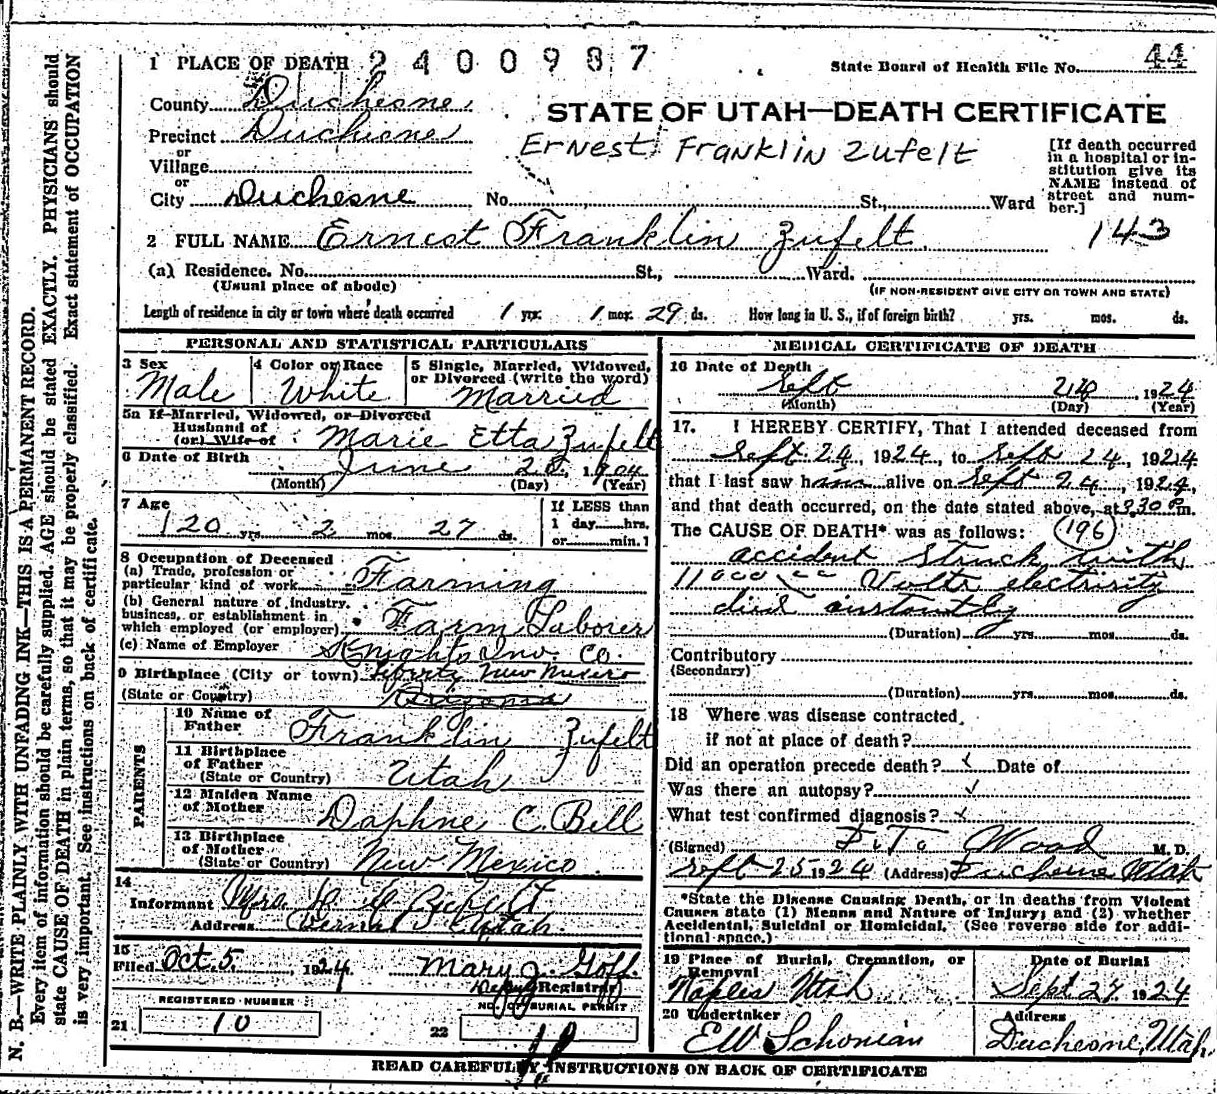 1 PLACE OF DEATH 2400987
State Board of Health File No. 44
County Duchesne
STATE OF UTAH—DEATH CERTIFICATE
Precinct Duchesne
Ernest Franklin Zufelt
or
Village
or
City Duchesne No. St., Ward
[If death occurred
in a hospital or in-
stitution give its
NAME instead of
street and num-
ber.]
2 FULL NAME Ernest Franklin Zufelt 143
(a) Residence. No. St., Ward.
(Usual place of abode) (IF NON-RESIDENT GIVE CITY OR TOWN AND STATE)
Length of residence in city or town where death occurred 1 yrs. 1 mos. 29 ds. How long in U. S., if of foreign birth? yrs. mos. ds.
PERSONAL AND STATISTICAL PARTICULARS
3 Sex Male
4 Color or Race White
5 Single, Married, Widowed,
or Divorced (write the word)
Married
5a If Married, Widowed, or Divorced
Husband of
(or) Wife of Marie Etta Zufelt
6 Date of Birth
June 1904
(Month) (Day) (Year)
7 Age
20 yrs. 2 mos. 27 ds.
If LESS than
1 day hrs.
or min.
8 Occupation of Deceased
(a) Trade, profession or
particular kind of work Farming
(b) General nature of industry,
business, or establishment in
which employed (or employer) Farm Laborer
(c) Name of Employer Knights Inv. Co.
9 Birthplace (City or town) New Mexico
(State or Country)
PARENTS
10 Name of
Father Franklin Zufelt
11 Birthplace
of Father
(State or Country) Utah
12 Maiden Name
of Mother Daphne C. Bell
13 Birthplace
of Mother
(State or Country) New Mexico
14
Informant Mrs.
Address Vernal Utah.
15
Filed Oct 5, 1924 Mary J. Goff
Deputy Registrar
REGISTERED NUMBER NO. OF BURIAL PERMIT
21 10 22
MEDICAL CERTIFICATE OF DEATH
16 Date of Death
Sept 24, 1924
(Month) (Day) (Year)
17. I HEREBY CERTIFY, That I attended deceased from
Sept. 24, 1924, to Sept 24, 1924
that I last saw him alive on Sept 24, 1924,
and that death occurred, on the date stated above, at 3.30 P m.
The CAUSE OF DEATH* was as follows: 196
accident struck with
11000 Volts electricity
died instantly
(Duration) yrs. mos. ds.
Contributory
(Secondary)
(Duration) yrs. mos. ds.
18 Where was disease contracted,
if not at place of death?
Did an operation precede death? Date of
Was there an autopsy?
What test confirmed diagnosis?
(Signed) Wood M. D.
Sept 25 1924 (Address) Duchesne Utah
*State the Disease Causing Death, or in deaths from Violent
Causes state (1) Means and Nature of Injury; and (2) whether
Accidental, Suicidal or Homicidal. (See reverse side for addi-
tional space.)
19 Place of Burial, Cremation, or
Removal
Naples Utah
Date of Burial
Sept 27, 1924
20 Undertaker
EW Schonian
Address
Duchesne, Utah
READ CAREFULLY INSTRUCTIONS ON BACK OF CERTIFICATE
N. B.—WRITE PLAINLY WITH UNFADING INK—THIS IS A PERMANENT RECORD.
Every item of information should be carefully supplied. AGE should be stated EXACTLY. PHYSICIANS should
state CAUSE OF DEATH in plain terms, so that it may be properly classified. Exact statement of OCCUPATION
is very important. See instructions on back of certificate.